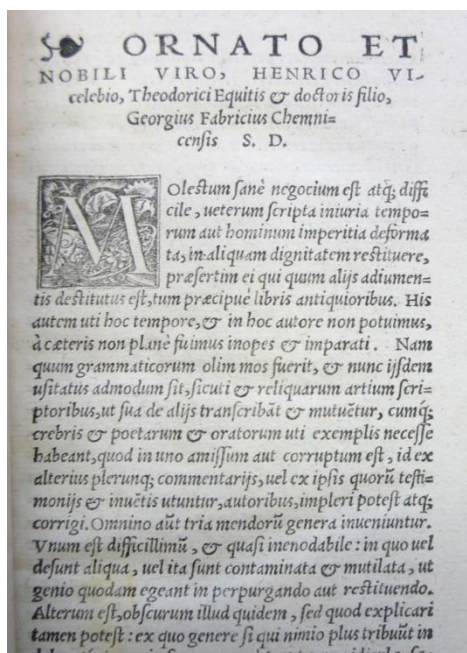 ORNATO ET
NOBILI VIRO, HENRICO VI-
celebio, Theodorici Equitis & doctoris filio,
Georgius Fabricius Chemni=
censis S. D.
MOlestum sanè negocium est atq; diffi
cile, ueterum scripta iniuria tempo=
rum aut hominum imperitia deforma
ta, in aliquam dignitatem restituere,
præsertim ei qui quum alijs adiumen-
tis destitutus est, tum præcipuè libris antiquioribus. His
autem uti hoc tempore, & in hoc autore non potuimus,
à cæteris non planè fuimus inopes & imparati. Nam
quum grammaticorum olim mos fuerit, & nunc ijsdem
usitatus admodum sit, sicuti & reliquarum artium scri=
ptoribus, ut sua de alijs transcribãt & mutuẽtur, cumq;
crebris & poetarum & oratorum uti exemplis necesse
habeant, quod in uno amissum aut corruptum est, id ex
alterius plerunq; commentarijs, uel ex ipsis quorũ testi=
monijs & inuẽtis utuntur, autoribus, impleri potest atq;
corrigi. Omnino aũt tria mendorũ genera inueniuntur.
Vnum est difficillimũ, & quasi inenodabile: in quo uel
desunt aliqua, uel ita sunt contaminata & mutilata, ut
genio quodam egeant in perpurgando aut restituendo.
Alterum est, obscurum illud quidem, sed quod explicari
tamen potest: ex quo genere si qui nimio plus tribuũt in